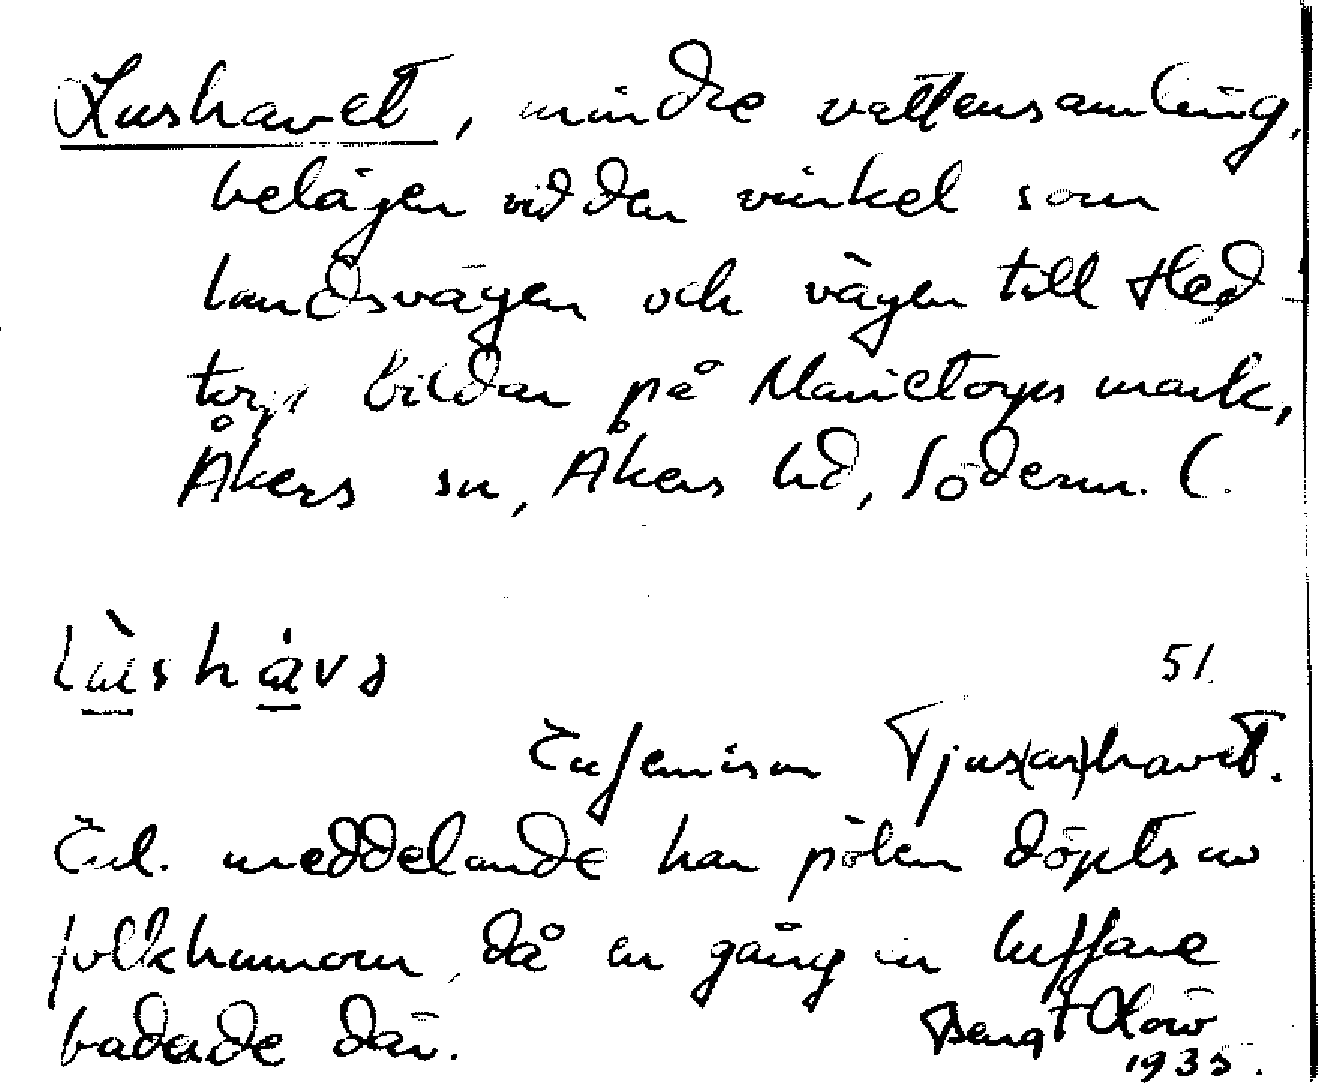 Lushavet, mindre vattensamling,
belägen vid den vinkel som
landsvägen och vägen till Hed-
torp bildar på Marietorps mark,
Åkers sn, Åkers hd, Söderm. l.
lùshávə
51.
Eufemism Tjus(ar)havet.
Enl. meddelande har pölen döpts av
folkhumorn, då en gång en luffare
badade där.
Bengt Löw
1935.